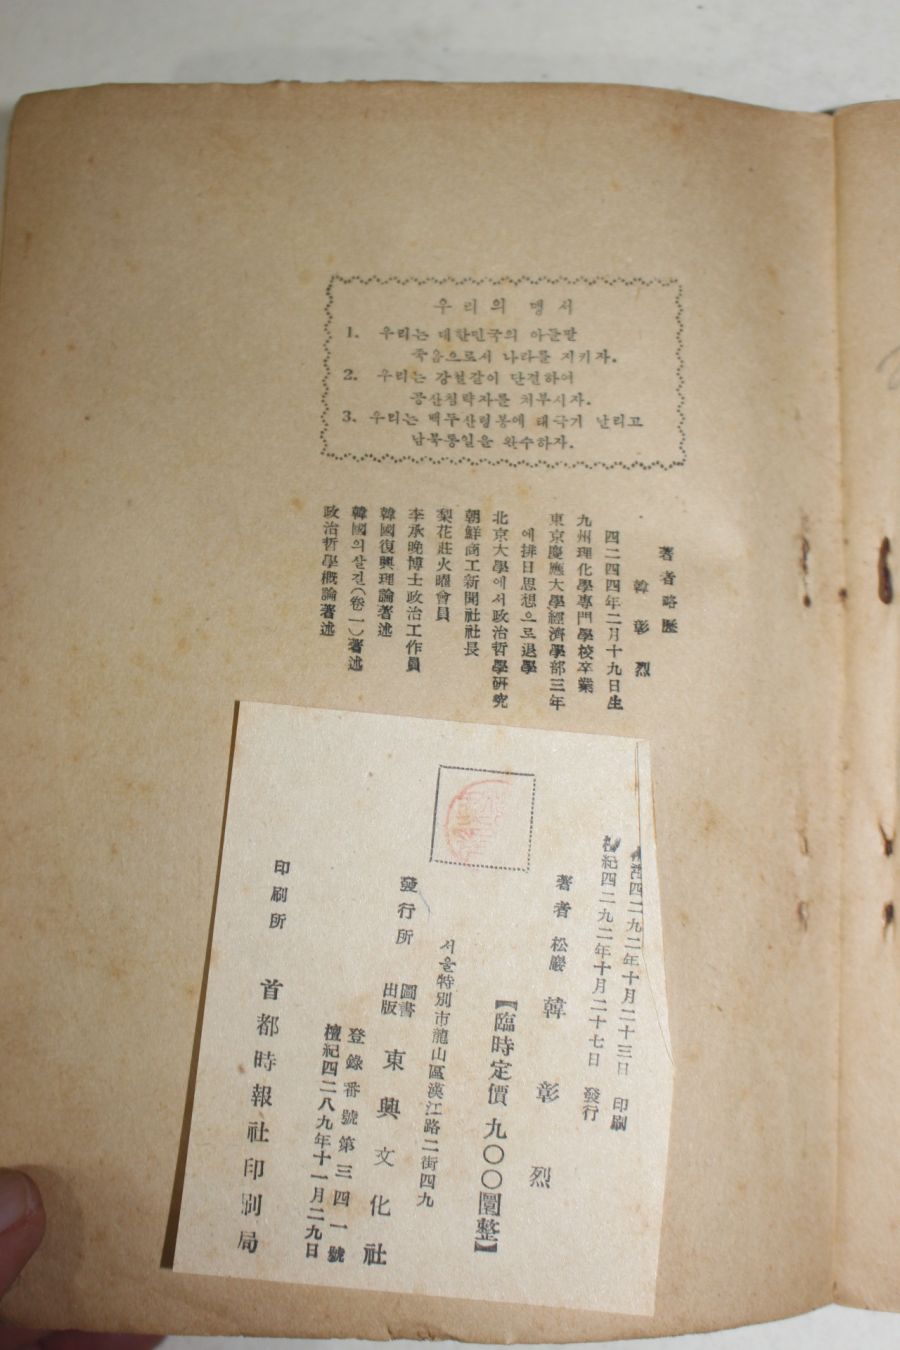 우리의 맹서
1. 우리는 대한민국의 아들딸
죽음으로서 나라를 지키자.
2. 우리는 강철같이 단결하여
공산침략자를 처부시자.
3. 우리는 백두산령봉에 태극기 날리고
남북통일을 완수하자.
著者略歷
韓彰烈
四二四四年二月十九日生
九州理化學專門學校卒業
東京慶應大學經濟學部三年
에排日思想으로退學
北京大學에서政治哲學硏究
朝鮮商工新聞社社長
梨花莊火曜會員
李承晩博士政治工作員
韓國復興理論著述
韓國의살길(卷一)著述
政治哲學槪論著述
紀四二九二年十月二十三日 印刷
檀紀四二九二年十月二十七日 發行
著者 松巖 韓彰烈
【臨時定價 九〇〇圜整】
서울特別市龍山區漢江路二街四九
發行所 圖書出版 東興文化社
登錄番號第三四一號
檀紀四二八九年十一月二九日
印刷所 首都時報社印刷局